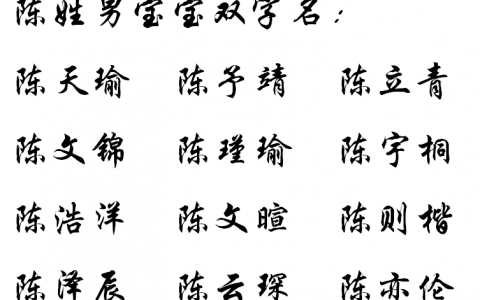 陈姓男宝宝双字名：
陈天瑜 陈予靖 陈立青
陈文锦 陈瑾瑜 陈宇桐
陈浩洋 陈文暄 陈则楷
陈泽辰 陈云琛 陈亦伦